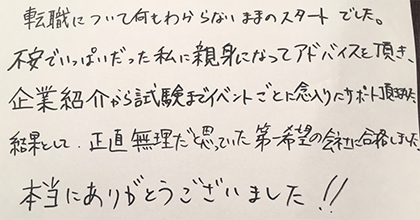 転職について何もわからないままのスタートでした。
不安でいっぱいだった私に親身になってアドバイスを頂き、
企業紹介から試験までイベントごとに念入りにサポート頂きました
結果として、正直無理だと思っていた第一希望の会社に合格しました
本当にありがとうございました!!